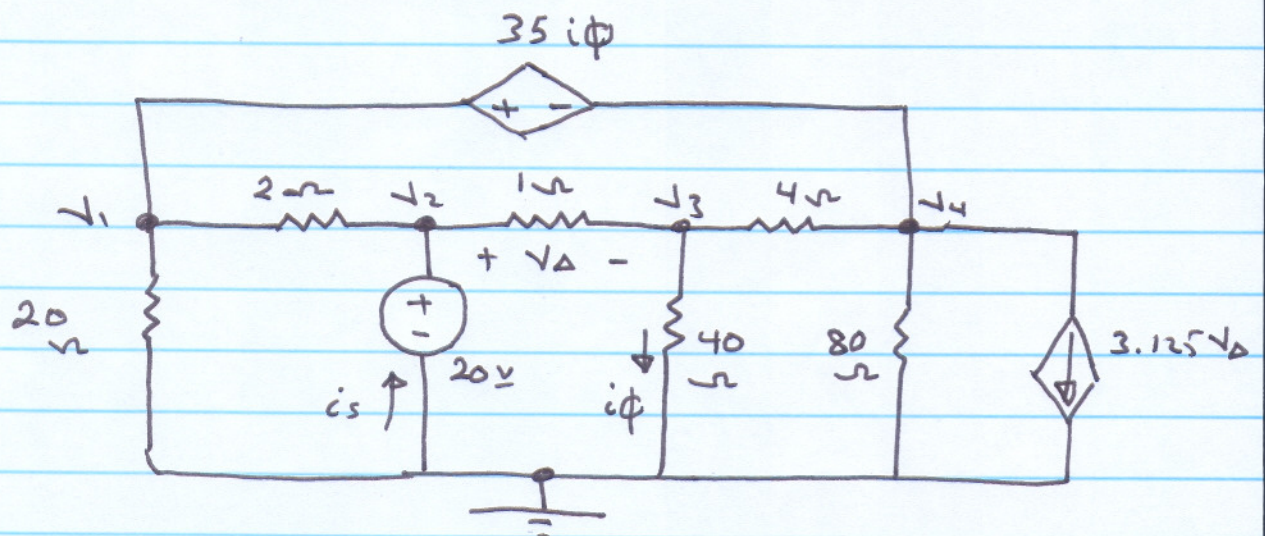 35 iϕ
+ -
V₁ 2Ω V₂ 1Ω V₃ 4Ω V₄
+ V∆ -
20
Ω
+
-
20V
is
iϕ
40
Ω
80
Ω
3.125 V∆